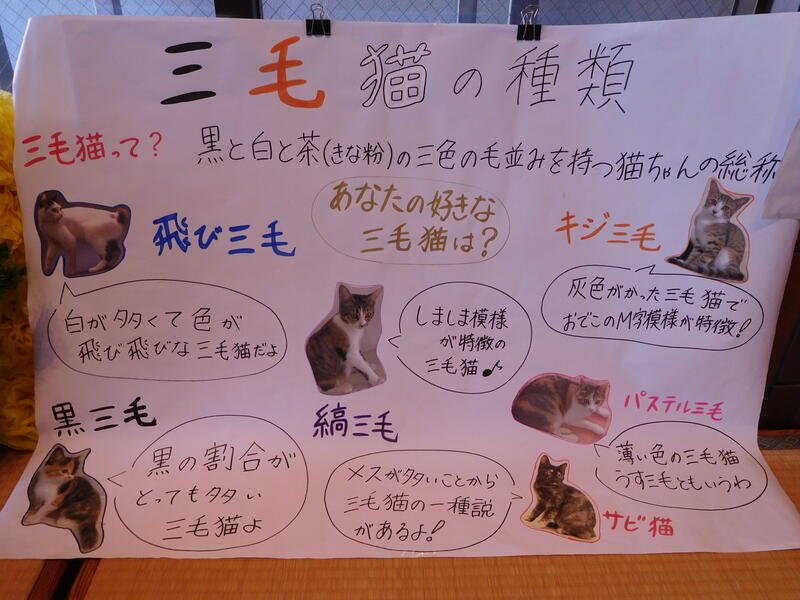 三毛猫の種類
三毛猫って?
黒と白と茶(きな粉)の三色の毛並みを持つ猫ちゃんの総称
飛び三毛
白が多くて色が
飛び飛びな三毛猫だよ
あなたの好きな
三毛猫は?
キジ三毛
灰色がかった三毛猫で
おでこのM字模様が特徴!
しましま模様
が特徴の
三毛猫♪
縞三毛
パステル三毛
薄い色の三毛猫
うす三毛ともいうわ
黒三毛
黒の割合が
とっても多い
三毛猫よ
メスが多いことから
三毛猫の一種説
があるよ!
サビ猫